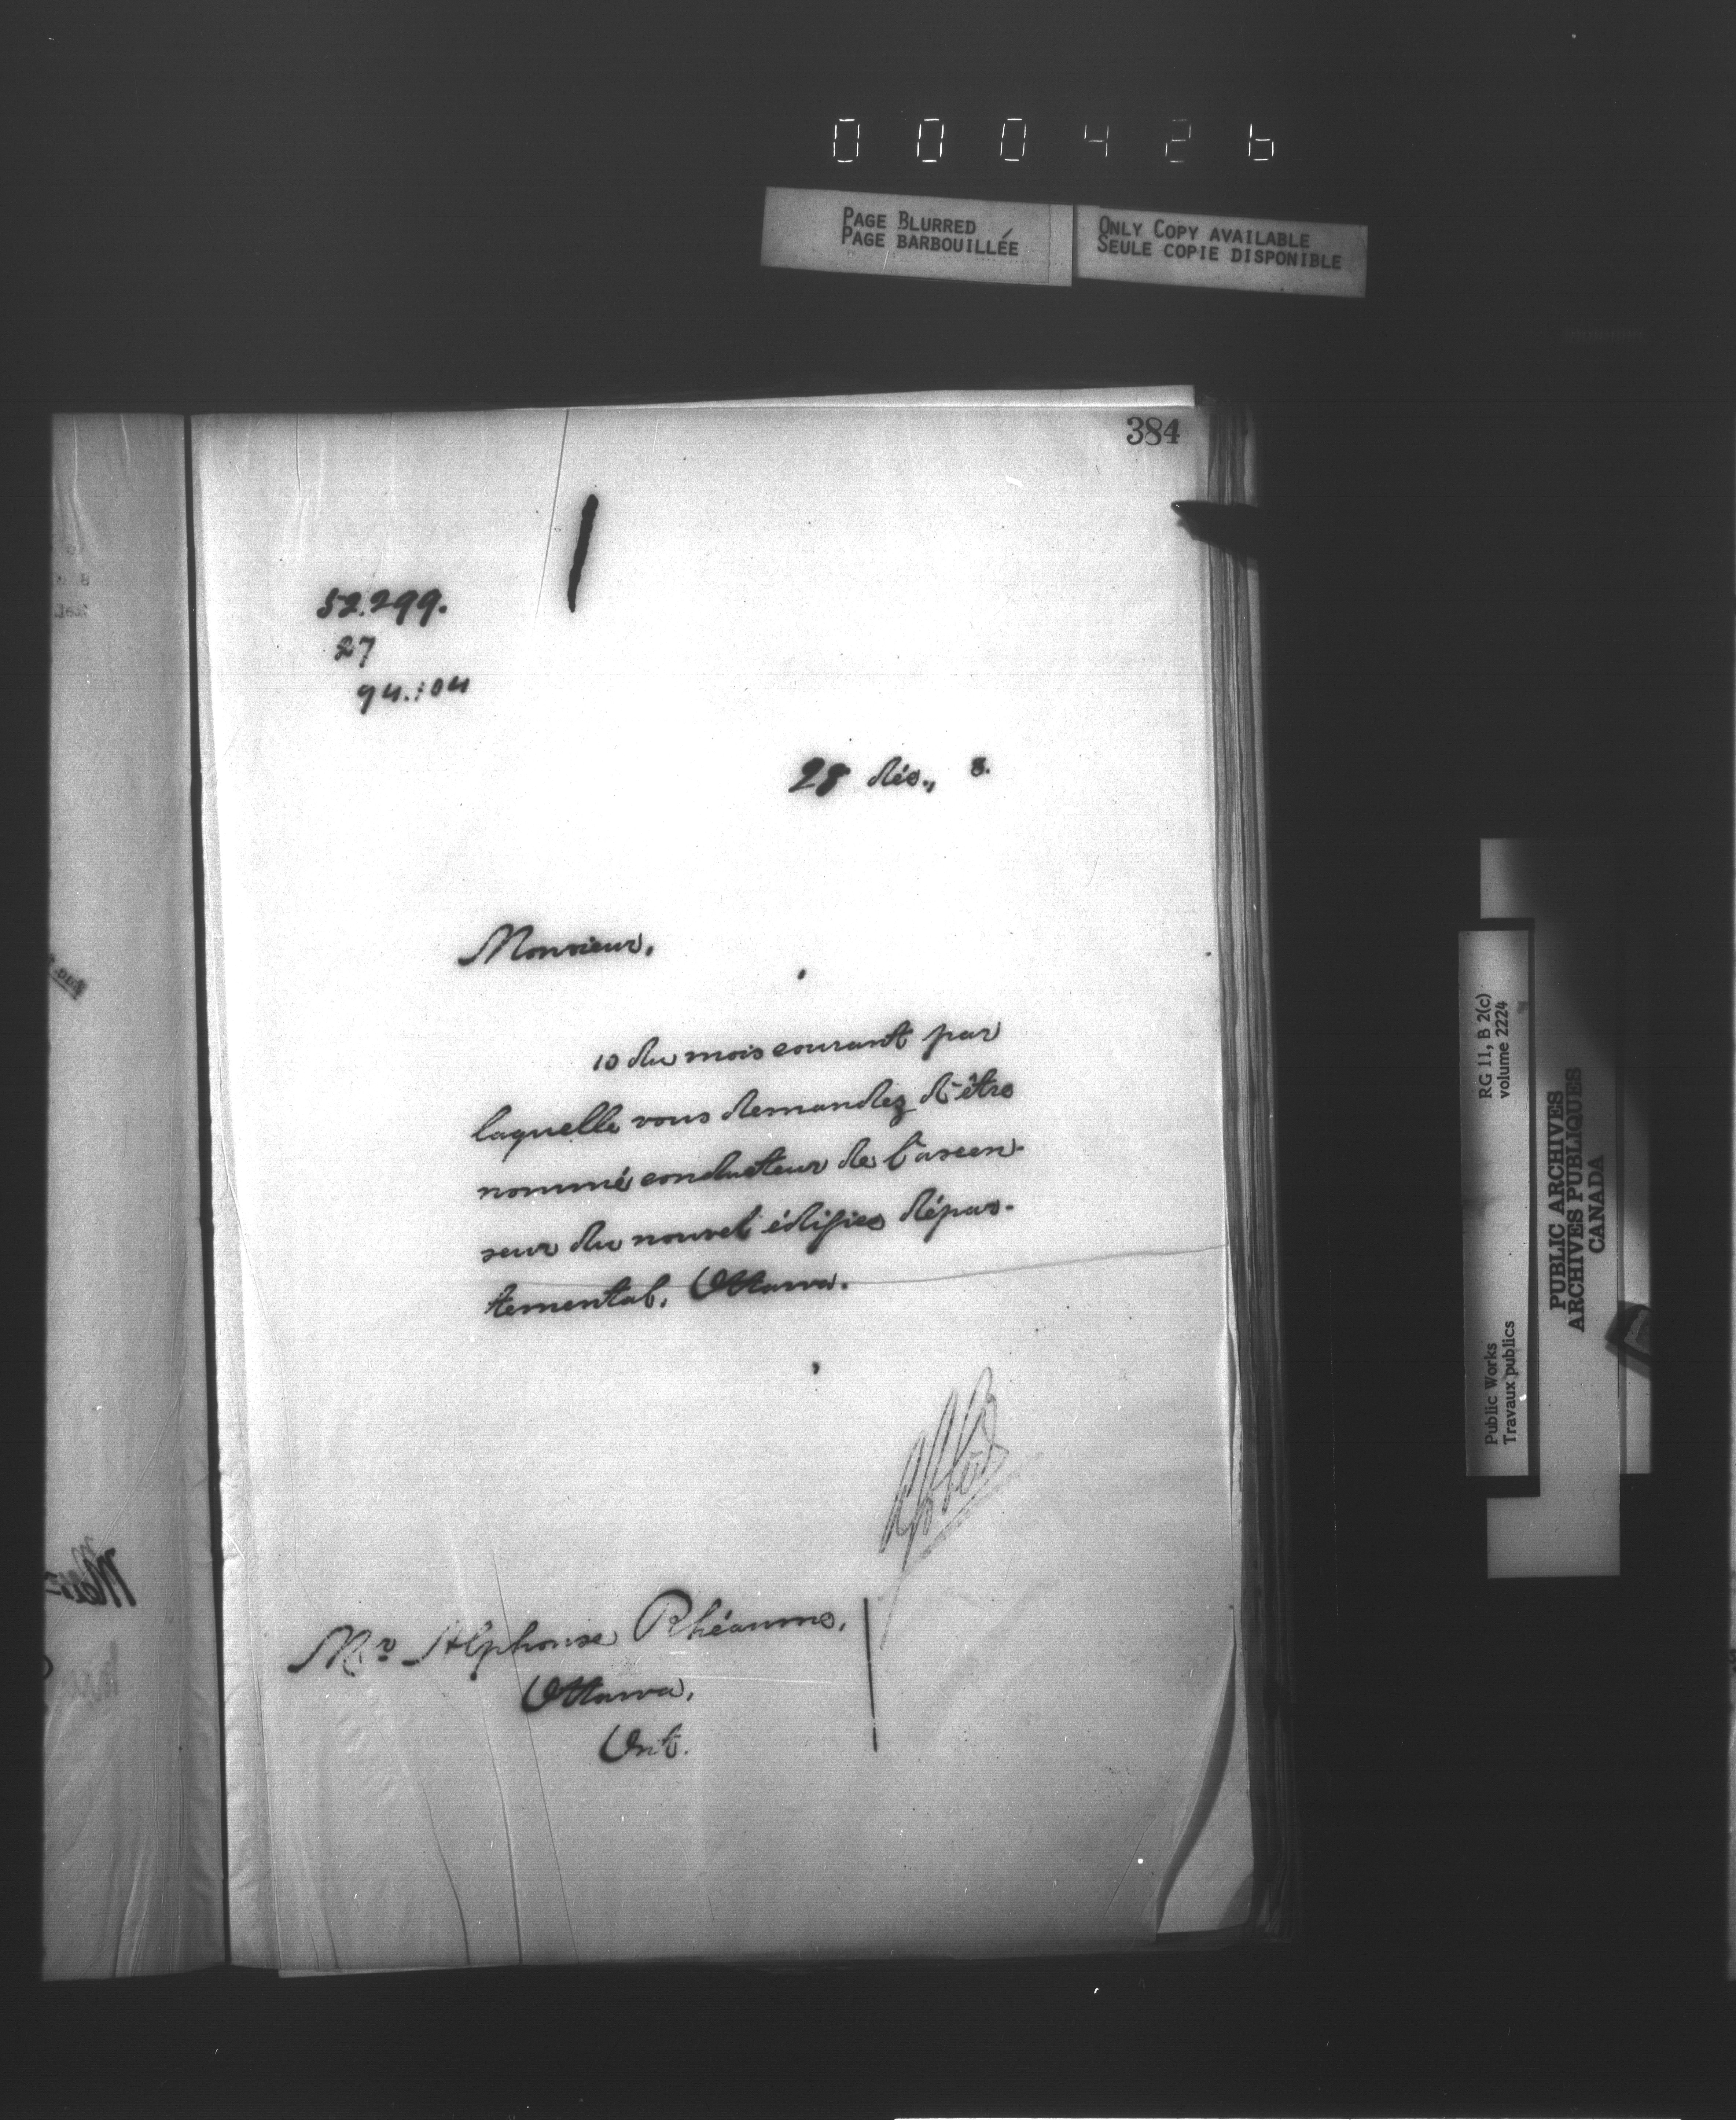 000426
PAGE BLURRED
PAGE BARBOUILLÉE
ONLY COPY AVAILABLE
SEULE COPIE DISPONIBLE
384
52.299.
27
94.104
28 déc., 8.
Monsieur,
10 du mois courant par
laquelle vous demandez d'être
nommé conducteur de l'ascen-
seur du nouvel édifice dépar-
temental, Ottawa.
Mr Alphonse Rhéaume,
Ottawa,
Ont.
RG 11, B 2(c)
volume 2224
Public Works
Travaux publics
PUBLIC ARCHIVES
ARCHIVES PUBLIQUES
CANADA